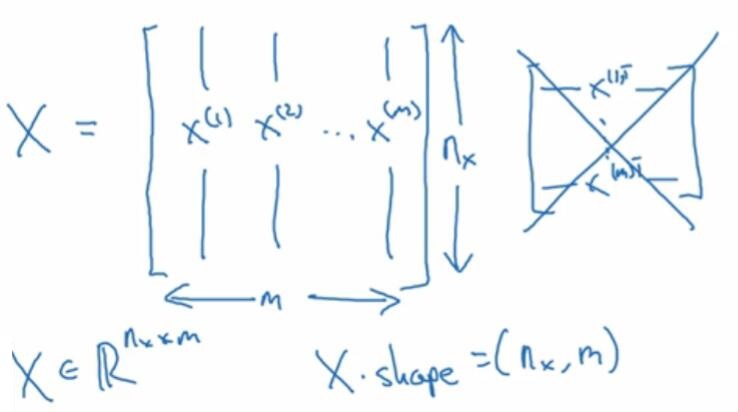 X = [ x^(1) x^(2) ... x^(m) ] n_x
x^(1)T
⋮
x^(m)T
m
X ∈ ℝ^(n_x × m)
X.shape = (n_x, m)